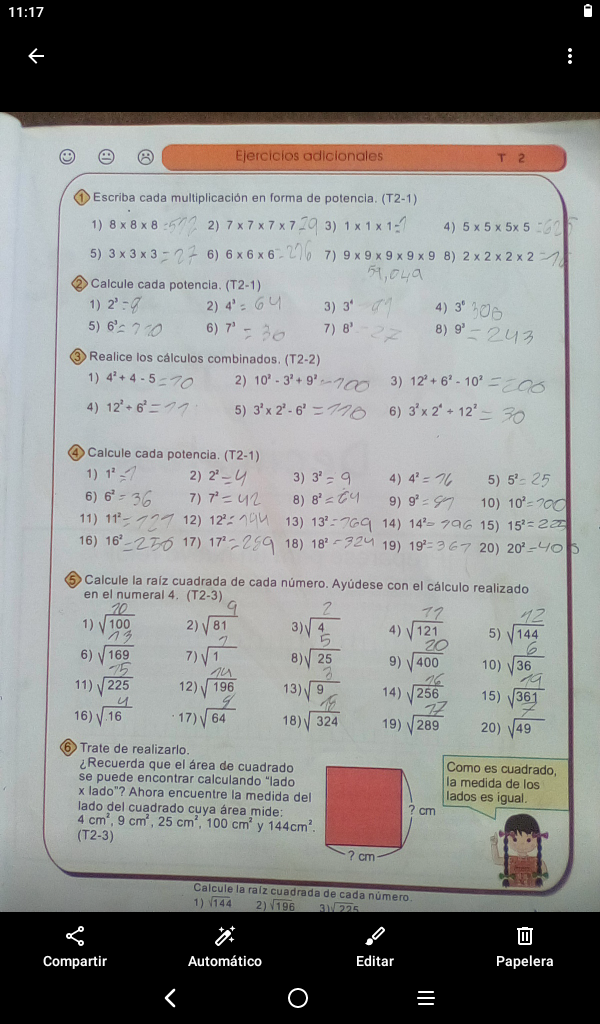 11:17
Ejercicios adicionales T 2
1 Escriba cada multiplicación en forma de potencia. (T2-1)
1) 8 x 8 x 8 =512 2) 7 x 7 x 7 x 7 3) 1 x 1 x 1 =1 4) 5 x 5 x 5x 5 =625
5) 3 x 3 x 3 = 27 6) 6 x 6 x 6 = 216 7) 9 x 9 x 9 x 9 x 9 8) 2 x 2 x 2 x 2 =16
59,049
2 Calcule cada potencia. (T2-1)
1) 2³ = 8 2) 4³ = 64 3) 3⁴ 4) 3⁶ 306
5) 6³ 6) 7³ = 30 7) 8³ = 27 8) 9³ = 243
3 Realice los cálculos combinados. (T2-2)
1) 4² + 4 - 5 = 10 2) 10² - 3² + 9² = 100 3) 12² + 6² - 10² = 206
4) 12² ÷ 6² = 11 5) 3² x 2² - 6² = 110 6) 3² x 2⁴ ÷ 12² = 30
4 Calcule cada potencia. (T2-1)
1) 1² = 1 2) 2² = 4 3) 3² = 9 4) 4² = 16 5) 5² = 25
6) 6² = 36 7) 7² = 42 8) 8² = 64 9) 9² = 81 10) 10² =100
11) 11² = 121 12) 12² = 144 13) 13² = 169 14) 14² = 196 15) 15² = 225
16) 16² = 256 17) 17² = 289 18) 18² = 324 19) 19² = 367 20) 20² = 400
5 Calcule la raíz cuadrada de cada número. Ayúdese con el cálculo realizado
en el numeral 4. (T2-3)
10 9 2 11 12
1) √100 2) √81 3) √4 4) √121 5) √144
13 1 5 20 6
6) √169 7) √1 8) √25 9) √400 10) √36
15 14 3 16 19
11) √225 12) √196 13) √9 14) √256 15) √361
4 8 18 17 7
16) √16 17) √64 18) √324 19) √289 20) √49
6 Trate de realizarlo.
¿Recuerda que el área de cuadrado
se puede encontrar calculando "lado
x lado"? Ahora encuentre la medida del
lado del cuadrado cuya área mide:
4 cm², 9 cm², 25 cm², 100 cm² y 144cm².
(T2-3)
? cm
? cm
Como es cuadrado,
la medida de los
lados es igual.
Calcule la raíz cuadrada de cada número.
1) √144 2) √196 3) √225
Compartir Automático Editar Papelera